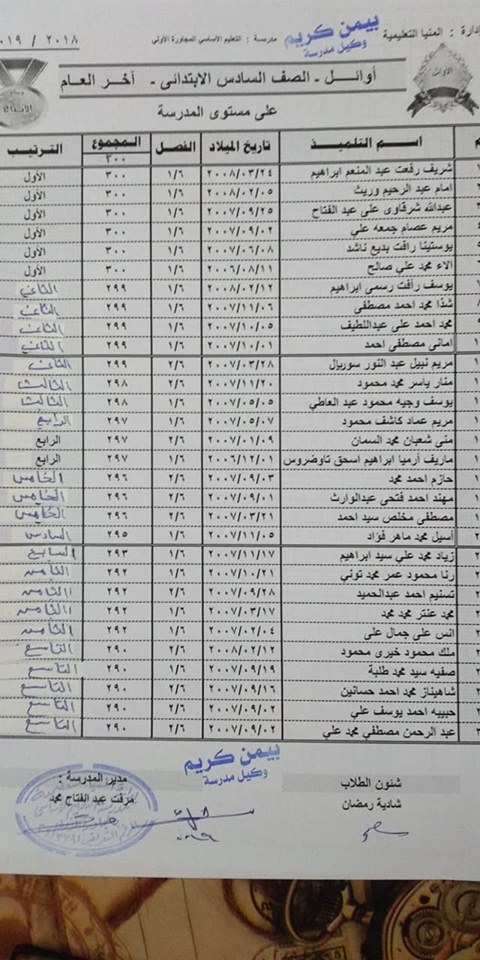 إدارة : المنيا التعليمية
مدرسة : التعليم الأساسي المجاورة الأولي
٢٠١٨ / ٢٠١٩
بيمن كريم
وكيل مدرسة
الأوائل
أوائل - الصف السادس الابتدائى - آخر العام
على مستوى المدرسة
م اسم التلميذ تاريخ الميلاد الفصل المجموع الترتيب
٣٠٠
شريف رفعت عبد المنعم ابراهيم ٢٠٠٨/٠٣/٢٤ ١/٦ ٣٠٠ الأول
امام عبد الرحيم وريث ٢٠٠٨/٠٢/٠٥ ١/٦ ٣٠٠ الأول
عبدالله شرقاوى على عبد الفتاح ٢٠٠٧/٠٩/٢٥ ١/٦ ٣٠٠ الأول
مريم عصام جمعه علي ٢٠٠٧/٠٩/٠٢ ١/٦ ٣٠٠ الأول
يوستينا رافت بديع ناشد ٢٠٠٧/٠٦/٠٨ ١/٦ ٣٠٠ الأول
الاء محمد علي صالح ٢٠٠٦/٠٨/١١ ١/٦ ٣٠٠ الأول
يوسف رأفت رسمى ابراهيم ٢٠٠٨/٠٢/١٢ ١/٦ ٢٩٩ الثانى
شذا محمد احمد مصطفى ٢٠٠٧/١١/٠٦ ١/٦ ٢٩٩ الثانى
محمد احمد على عبداللطيف ٢٠٠٧/١٠/٠٥ ١/٦ ٢٩٩ الثانى
امانى مصطفى احمد ٢٠٠٧/١٠/٠١ ١/٦ ٢٩٩ الثانى
مريم نبيل عبد النور سوريال ٢٠٠٧/٠٣/٢٨ ٢/٦ ٢٩٩ الثانى
منار ياسر محمد محمود ٢٠٠٧/١١/٢٠ ٢/٦ ٢٩٨ الثالث
يوسف وجيه محمود عبد العاطي ٢٠٠٧/٠٥/٠٥ ١/٦ ٢٩٨ الثالث
مريم عماد كاشف محمود ٢٠٠٧/٠٥/٠٧ ١/٦ ٢٩٧ الرابع
منى شعبان محمد السمان ٢٠٠٧/٠١/٠٩ ٢/٦ ٢٩٧ الرابع
ماريف أرميا ابراهيم اسحق تاوضروس ٢٠٠٦/١٢/٠١ ١/٦ ٢٩٧ الرابع
حازم احمد محمد ٢٠٠٧/٠٩/٠٣ ٢/٦ ٢٩٦ الخامس
مهند احمد فتحى عبدالوارث ٢٠٠٧/٠٩/٠١ ٢/٦ ٢٩٦ الخامس
مصطفى مخلص سيد احمد ٢٠٠٧/٠٣/٢١ ١/٦ ٢٩٦ الخامس
أسيل محمد ماهر فؤاد ٢٠٠٧/١١/٠٥ ١/٦ ٢٩٥ السادس
زياد محمد علي سيد ابراهيم ٢٠٠٧/١١/١٧ ١/٦ ٢٩٣ السابع
رنا محمود عمر محمد توني ٢٠٠٧/١٠/٢١ ١/٦ ٢٩٢ الثامن
تسنيم احمد عبدالحميد ٢٠٠٧/٠٩/٢٨ ٢/٦ ٢٩٢ الثامن
محمد عنتر محمد محمد ٢٠٠٧/٠٣/١٧ ١/٦ ٢٩٢ الثامن
انس على جمال على ٢٠٠٧/٠٢/٠٤ ١/٦ ٢٩٢ الثامن
ملك محمود خيرى محمود ٢٠٠٨/٠٢/١٢ ٢/٦ ٢٩٠ التاسع
صفيه سيد محمد طلبة ٢٠٠٧/٠٩/١٩ ١/٦ ٢٩٠ التاسع
شاهيناز محمد احمد حسانين ٢٠٠٧/٠٩/١٦ ٢/٦ ٢٩٠ التاسع
حبيبه احمد يوسف علي ٢٠٠٧/٠٩/٠٢ ٢/٦ ٢٩٠ التاسع
عبد الرحمن مصطفي محمد علي ٢٠٠٧/٠٩/٠٢ ٢/٦ ٢٩٠ التاسع
بيمن كريم
وكيل مدرسة
شئون الطلاب
شادية رمضان
مدير المدرسة :
مرفت عبد الفتاح محمد